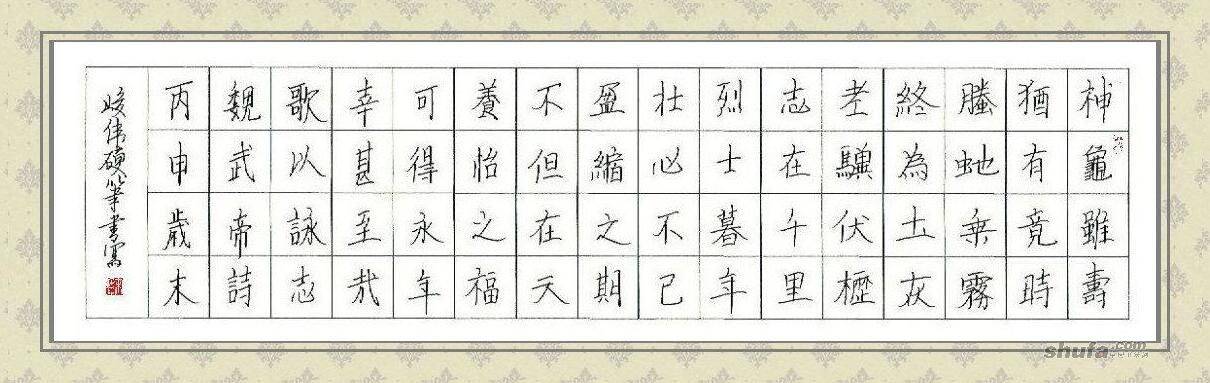 神龜雖壽
猶有竟時
螣虵乘霧
終為土灰
老驥伏櫪
志在千里
烈士暮年
壯心不已
盈縮之期
不但在天
養怡之福
可得永年
幸甚至哉
歌以詠志
魏武帝詩
丙申歲末
峻伟硬筆書寫
shufa.com